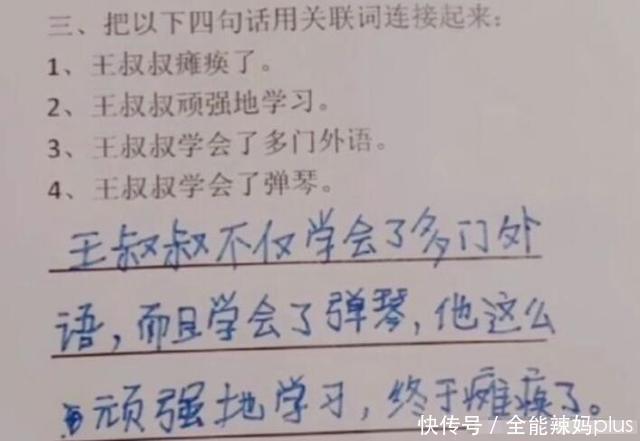 三、把以下四句话用关联词连接起来:
1、王叔叔瘫痪了。
2、王叔叔顽强地学习。
3、王叔叔学会了多门外语。
4、王叔叔学会了弹琴。
王叔叔不仅学会了多门外
语,而且学会了弹琴,他这么
顽强地学习,终于瘫痪了。
快传号 / 全能辣妈plus